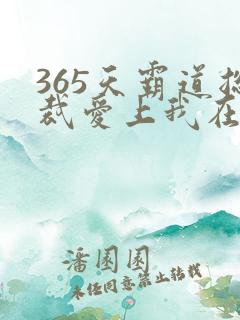 365天霸道总
裁爱上我在
潘团团
未经同意禁止转载